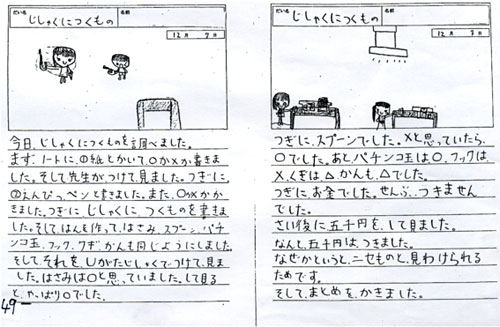 だい名
じしゃくにつくもの
名前
12月 7日
今日、じしゃくにつくものを調べました。
まず、ノートに、①紙とかいて、〇か×か書きま
した。そして先生がつけて、見ました。つぎに
②えんぴつ、ペンと書きました。また、〇か×かか
きました。つぎに じしゃくに つくものを書きま
した。そして、はんを作って、はさみ、スプーン、パチ
ンコ玉、フック、クギ、かんも同じようにしました
そして、それを、Uがたじしゃくでつけて、見ま
した。はさみは〇と思っていました。して見る
と、やっぱり〇でした。
49
だい名
じしゃくにつくもの
名前
12月 7日
つぎに、スプーンでした。×と思っていたら、
〇でした。あと、パチンコ玉は〇、フックは
×、くぎは△、かんも、△でした。
つぎに、お金でした。ぜんぶ、つきません
でした。
さい後に五千円を、して見ました。
なんと、五千円は、つきました。
なぜかというと、ニセものと、見わけられる
ためです。
そして、まとめを、かきました。